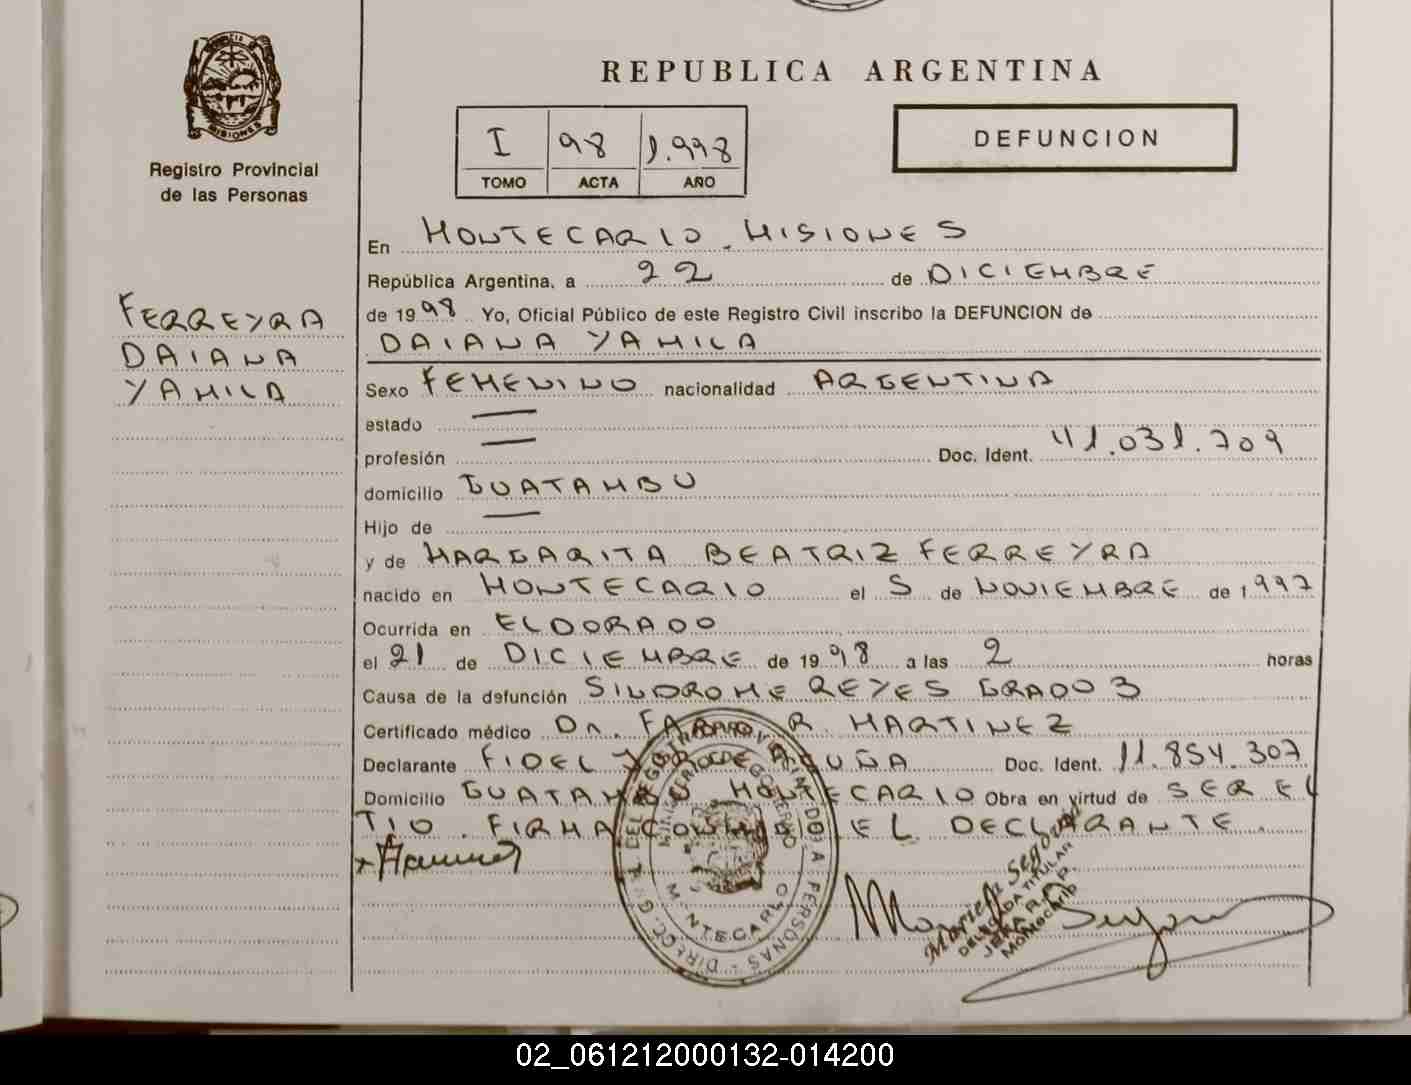 REPUBLICA ARGENTINA
MISIONES
Registro Provincial
de las Personas
I 98 1.998
TOMO ACTA AÑO
DEFUNCION
FERREYRA
DAIANA
YAMILA
En MONTECARLO. MISIONES
República Argentina, a 22 de DICIEMBRE
de 1998 Yo, Oficial Público de este Registro Civil inscribo la DEFUNCION de
DAIANA YAMILA
Sexo FEMENINO nacionalidad ARGENTINA
estado —
profesión — Doc. Ident. 41.031.709
domicilio GUATAMBU
Hijo de —
y de MARGARITA BEATRIZ FERREYRA
nacido en MONTECARLO el 5 de NOVIEMBRE de 1997
Ocurrida en ELDORADO
el 21 de DICIEMBRE de 1998 a las 2 horas
Causa de la defunción SINDROME REYES GRADO 3
Certificado médico Dr. R. MARTINEZ
Declarante FIDEL ACUÑA Doc. Ident. 11.854.307
Domicilio GUATAMBU MONTECARLO Obra en virtud de SER EL
TIO. FIRMA CONMIGO EL DECLARANTE.
MONTECARLO
Mariela Segovia
DELEGADA TITULAR
02_061212000132-014200